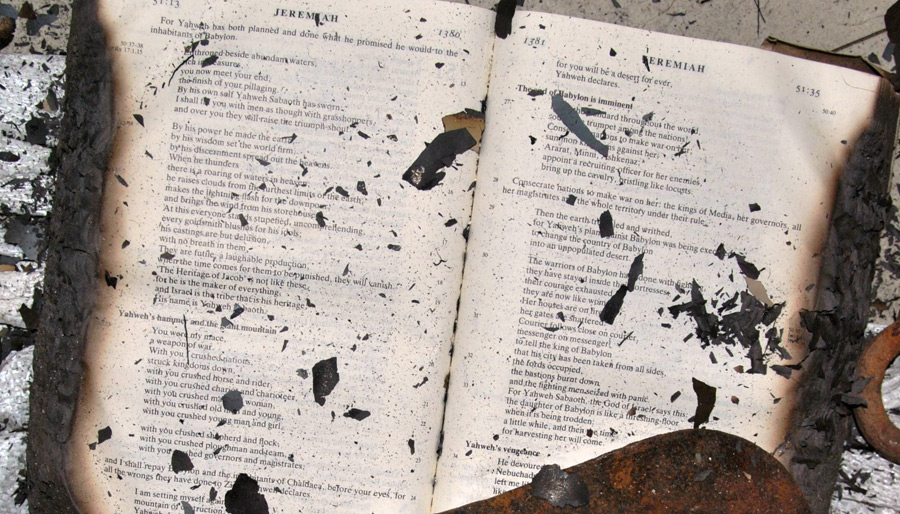 51:13
JEREMIAH
1380
For Yahweh has both planned and done what he promised he would to the
inhabitants of Babylon.
enthroned beside abundant waters,
rich in treasure,
you now meet your end,
the finish of your pillaging.
By his own self Yahweh Sabaoth has sworn:
I shall fill you with men as though with grasshoppers,
and over you they will raise the triumph-shout.
By his power he made the earth,
by his wisdom set the world firm,
by his discernment spread out the heavens.
When he thunders
there is a roaring of waters in heaven;
he raises clouds from the furthest limits of the earth,
makes the lightning flash for the downpour,
and brings the wind from his storehouse.
At this everyone stands stupefied, uncomprehending,
every goldsmith blushes for his idols;
his castings are but delusion,
with no breath in them.
They are futile, a laughable production,
when the time comes for them to be punished, they will vanish.
The Heritage of Jacob is not like these,
for he is the maker of everything,
and Israel is the tribe that is his heritage;
His name is Yahweh Sabaoth.
Yahweh's hammer and the giant mountain
You were my mace,
a weapon of war.
With you I crushed nations,
struck kingdoms down,
with you crushed horse and rider,
with you crushed chariot and charioteer,
with you crushed man and woman,
with you crushed old man and young,
with you crushed young man and girl,
with you crushed shepherd and flock,
with you crushed ploughman and team,
with you crushed governors and magistrates,
and I shall repay Babylon and the inhabitants of Chaldaea, before your eyes, for
all the wrongs they have done to Zion, Yahweh declares.
I am setting myself against
mountain of destruction
Yahweh
1381
JEREMIAH
51:35
for you will be a desert for ever,
Yahweh declares.
The end of Babylon is imminent
standard throughout the world,
trumpet among the nations!
nations to make war on her,
summon kingdoms against her:
Ararat, Minni, Ashkenaz;
appoint a recruiting officer for her enemies,
bring up the cavalry, bristling like locusts.
Consecrate nations to make war on her: the kings of Media, her governors, all
her magistrates and the whole territory under their rule.
Then the earth trembled and writhed,
for Yahweh's plan against Babylon was being executed:
to change the country of Babylon
into an unpopulated desert.
The warriors of Babylon have done with fighting,
they have stayed inside their fortresses;
their courage exhausted,
they are now like women.
Her houses are on fire,
her gates are shattered.
Courier follows close on courier,
messenger on messenger,
to tell the king of Babylon
that his city has been taken from all sides,
the fords occupied,
the bastions burnt down
and the fighting men seized with panic.
For Yahweh Sabaoth, the God of Israel, says this:
The daughter of Babylon is like a threshing-floor
when it is being trodden:
a little while, and then the time
for harvesting her will come.
Yahweh's vengeance
He devoured
Nebuchad
left me